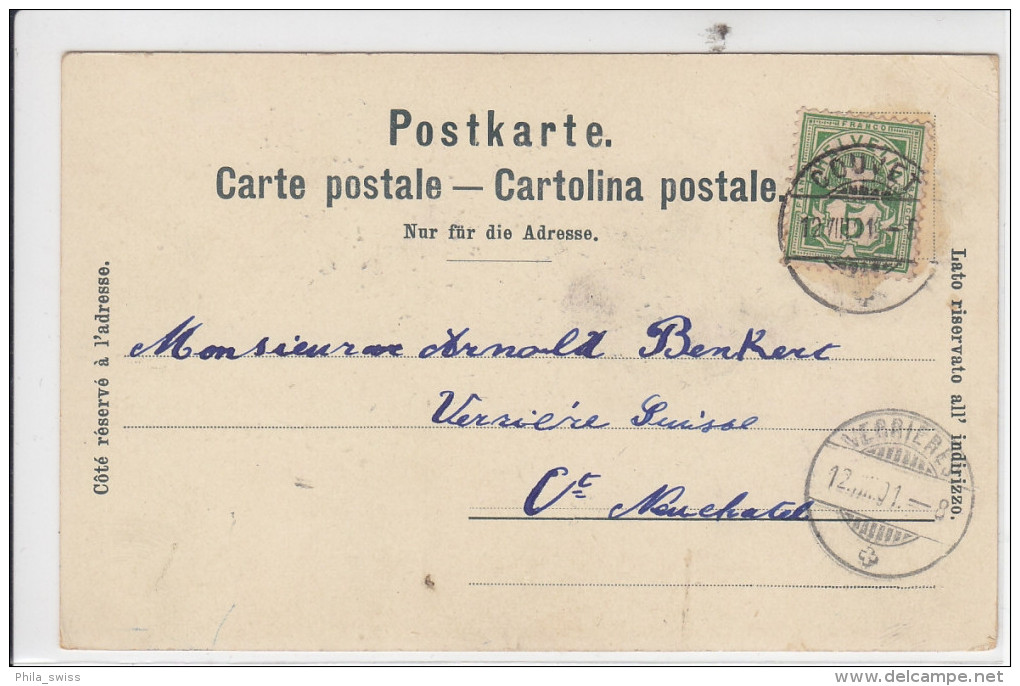 Postkarte.
Carte postale — Cartolina postale.
Nur für die Adresse.
Côté réservé à l'adresse.
Lato riservato all' indirizzo.
FRANCO
HELVETIA
5
COUVET
12.VIII.01.–
Monsieur Arnold Benkert
Verrière Suisse
Ct. Neuchatel
VERRIÈRES
12.VIII.01.–8
Phila_swiss
www.delcampe.net